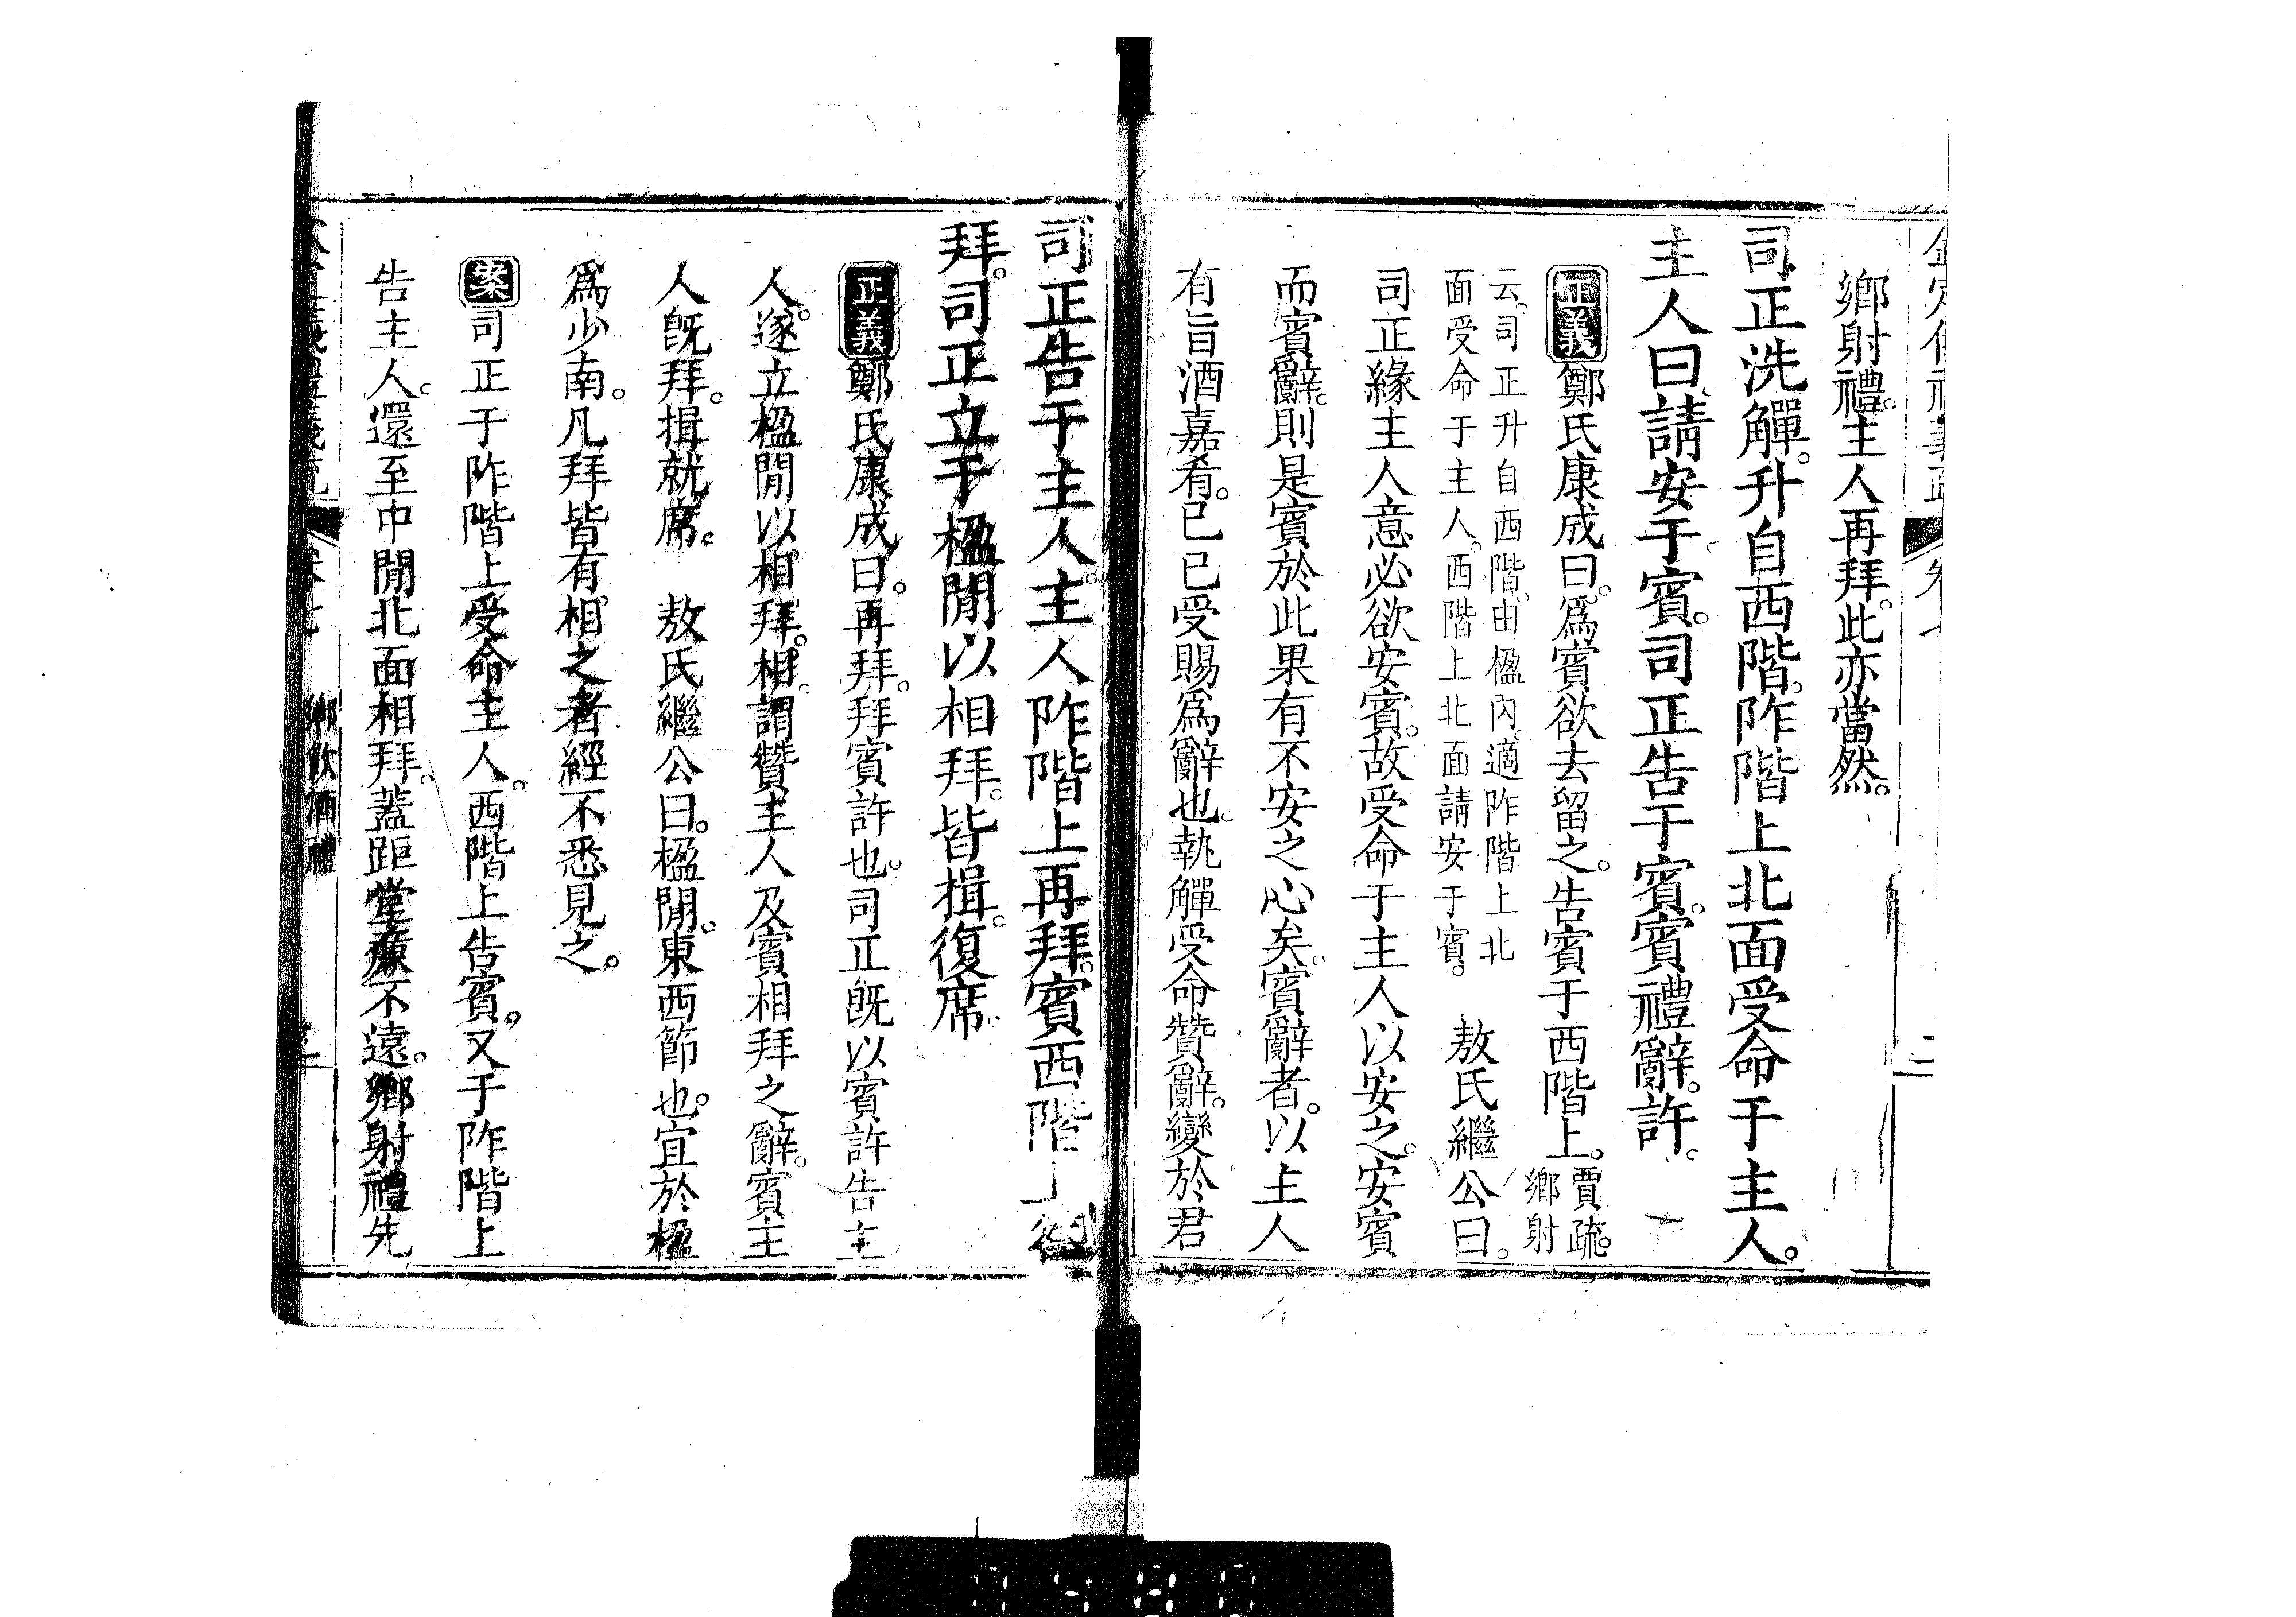 鄉射禮。主人再拜。此亦當然。
司正洗觶。升自西階。阼階上北面受命于主人。
主人曰。請安于賓。司正告于賓。賓禮辭。許。
正義鄭氏康成曰。爲賓欲去留之。告賓于西階上。賈疏。鄉射
云。司正升自西階。由楹內。適阼階上北
面受命于主人。西階上北面請安于賓。　敖氏繼公曰。
司正緣主人意必欲安賓。故受命于主人以安之。安賓
而賓辭。則是賓於此果有不安之心矣。賓辭者。以主人
有旨酒嘉肴。已已受賜爲辭也。執觶受命贊辭。變於君
司正告于主人。主人阼階上再拜。賓西階
拜。司正立于楹閒以相拜。皆揖。復席。
正義鄭氏康成曰。再拜。拜賓許也。司正既以賓許告主
人。遂立楹閒以相拜。相。謂贊主人及賓相拜之辭。賓主
人既拜。揖就席。　敖氏繼公曰。楹閒。東西節也。宜於楹
爲少南。凡拜皆有相之者。經不悉見之。
案司正于阼階上受命主人。西階上告賓。又于阼階上
告主人。還至中閒北面相拜。蓋距堂廉不遠。鄉射禮先
鄉飲酒禮